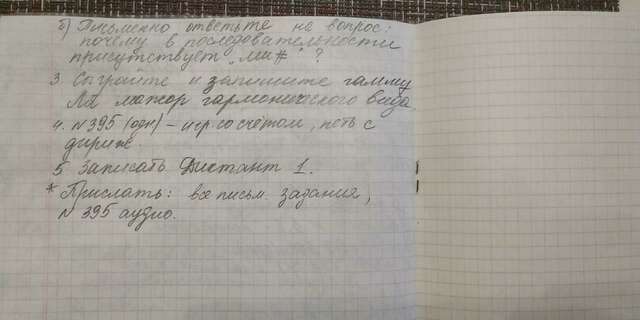 б) Письменно ответьте на вопрос:
почему в последовательности
присутствует „ми#" ?
3. Сыграйте и запишите гамму
Ля мажор гармонического вида
4. N 395 (одн) – игр. со счётом, петь с
дириж.
5. Записать Диктант 1.
* Прислать: все письм. задания,
N 395 аудио.